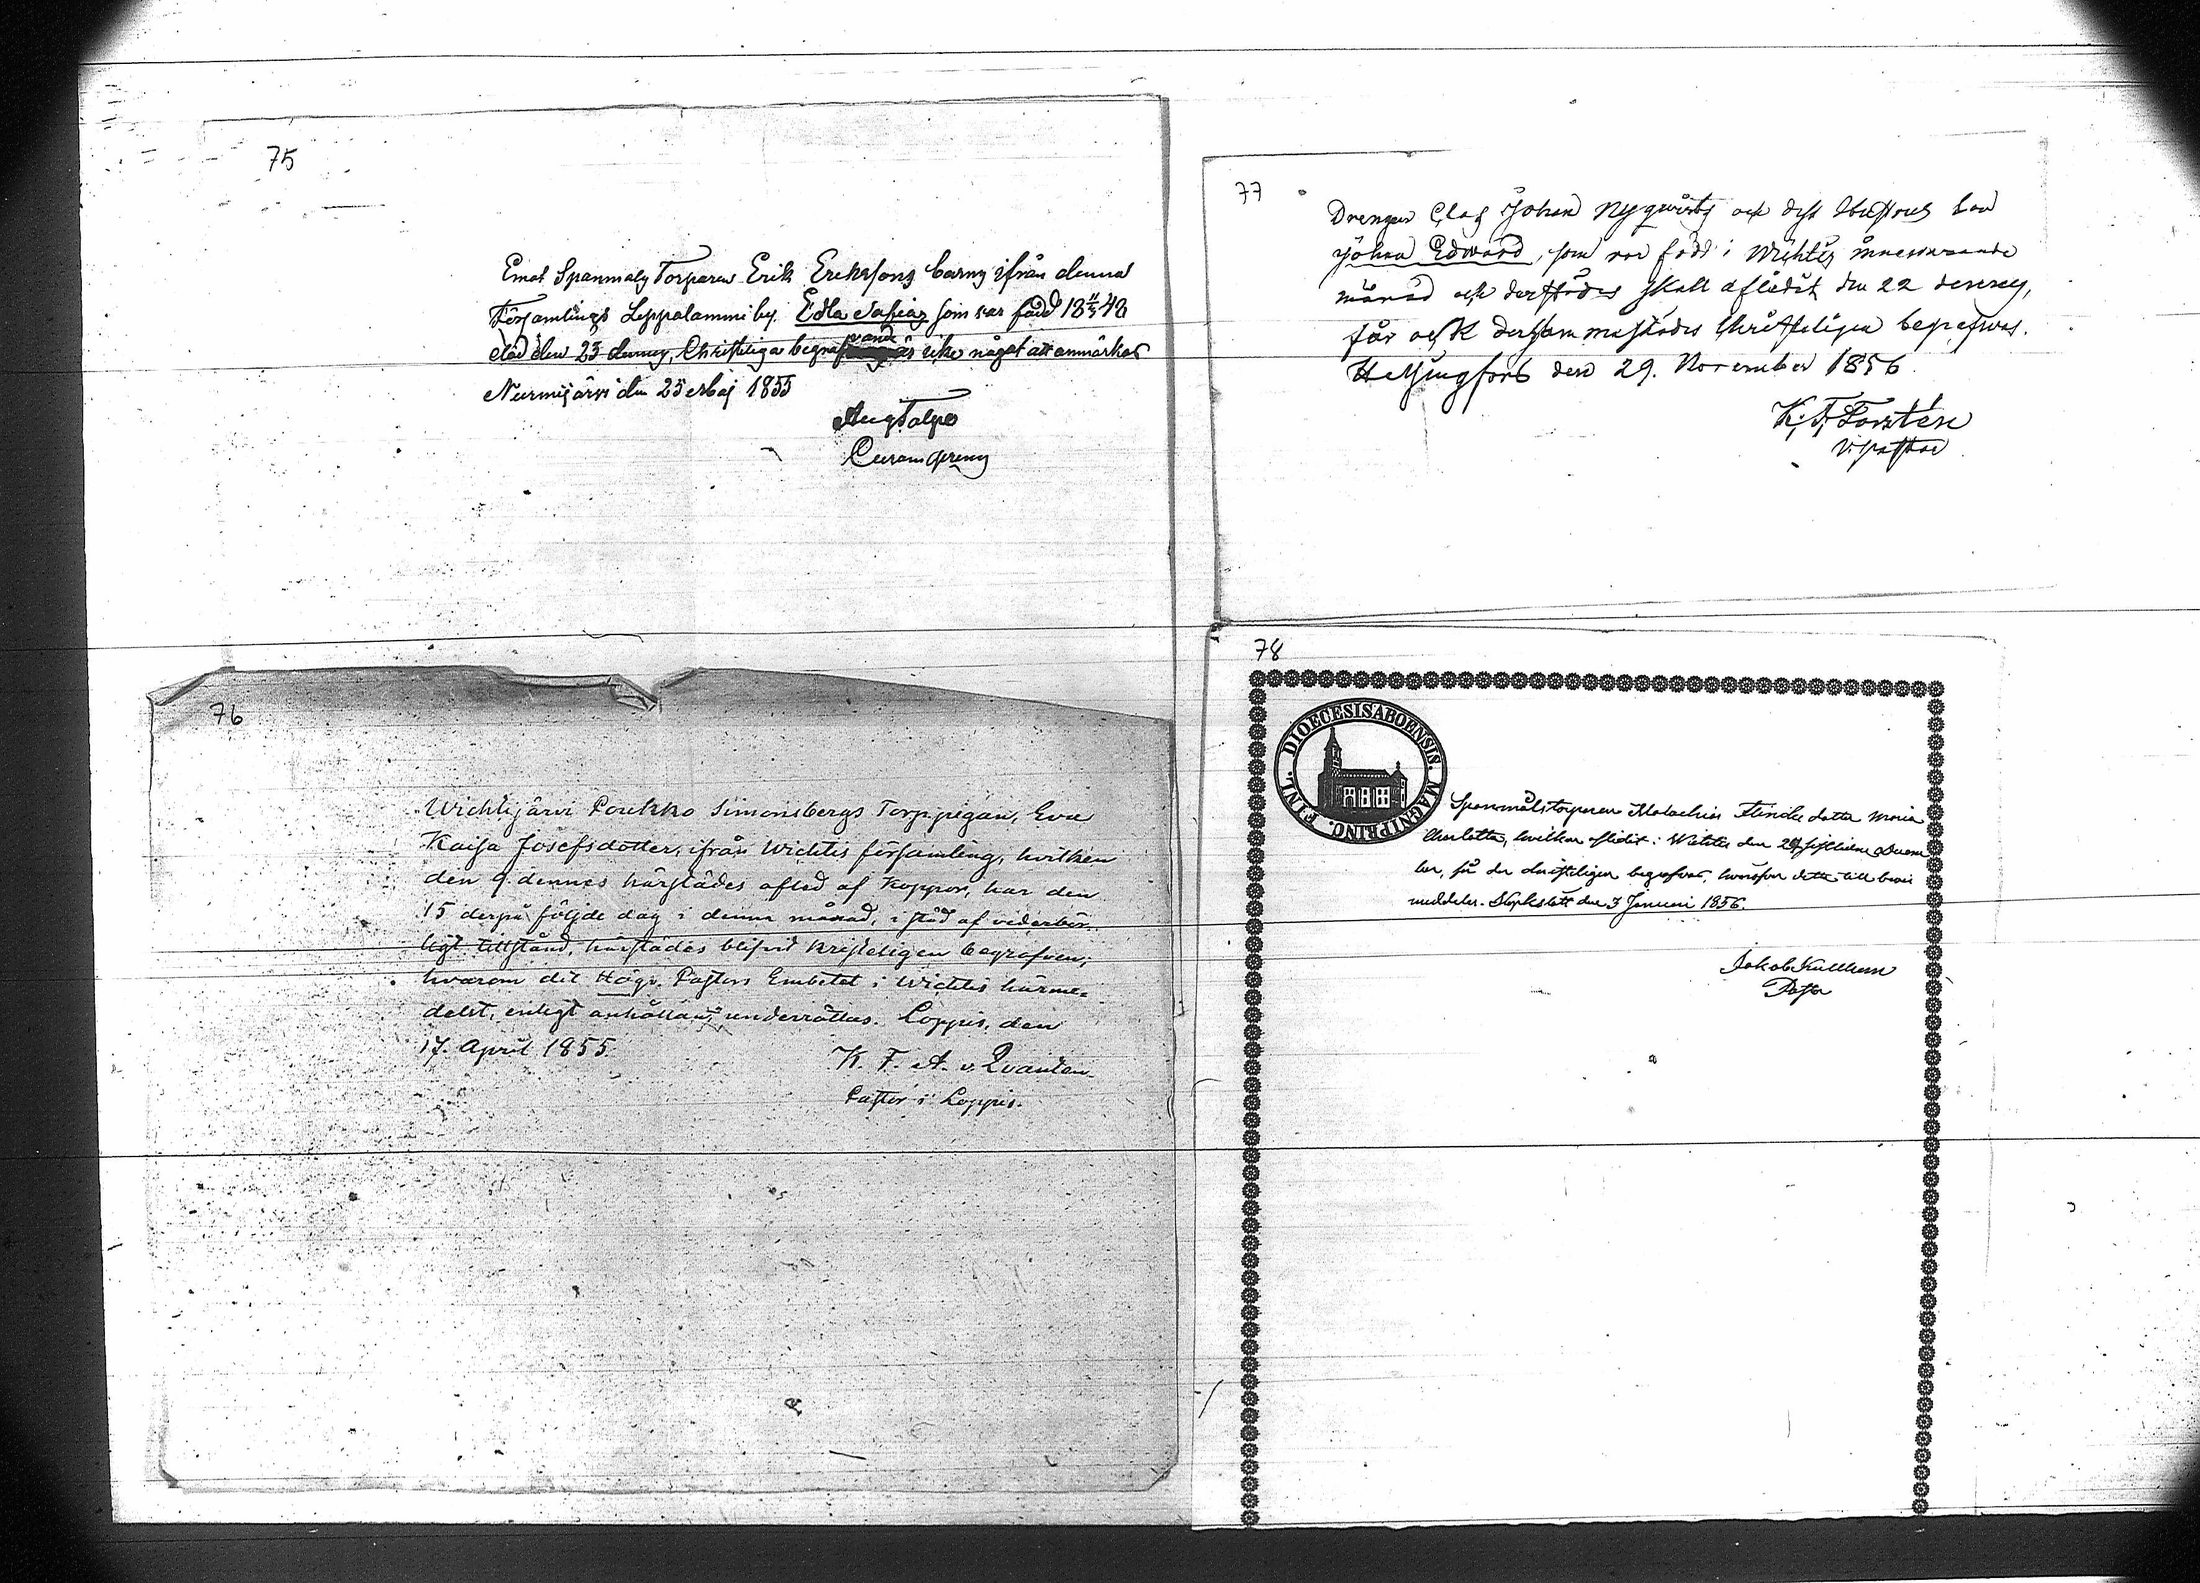 75
Emot Spanmåls Torparen Erik Eriksons barns ifrån denna
Församlings Leppälammi by. Edla Sofias som var född 18 11/5 48
död den 23 dennes, Christeliga begrafvande är icke något att anmärka
Nurmijärvi den 25 Maj 1855
Aug Talpo
76
Wichtijärvi Poukko Simonsbergs Torppigan, Eva
Kaisa Josefsdotter, ifrån Wichtis församling, hvilken
den 9. dennes härstädes afled af Koppor, har den
15 derpå följde dag i denna månad, i stöd af vederbör-
ligt tillstånd, härstädes blifvit kristeligen begrafven;
hvarom det Högv. Pastors Embetet i Wichtis härme-
delst, enligt anhållan, underrättas. Loppis, den
17. April 1855.
K. F. A. v. Qvanten
Pastor i Loppis.
77
Drengen Clas Johan Nyqvists och dess Hustrus son
Johan Edward, som var född i Wichtis innevarande
månad och derstädes skall aflidit den 22 dennes,
får ock dersammastädes Christeligen begrafvas.
Helsingfors den 29. November 1856.
K. F. Forstén
V. pastor
78
DIOECESIS ABOENSIS. MAGNI PRINC. FINL.
Spanmålstorparen Malachias dotter Maria
Charlotta, hvilken aflidit i Wichtis den sistlidne Decem
ber, får der christeligen begrafvas, hvaröfver detta till bevis
meddelas. den 3 Januari 1856.
Jakob
Pastor